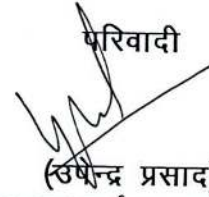 परिवादी
(उपेन्द्र प्रसाद